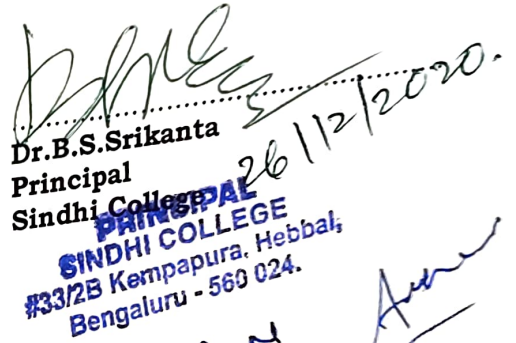 Dr.B.S.Srikanta
26/12/2020.
Principal
Sindhi College
PRINCIPAL
SINDHI COLLEGE
#33/2B Kempapura, Hebbal,
Bengaluru - 560 024.